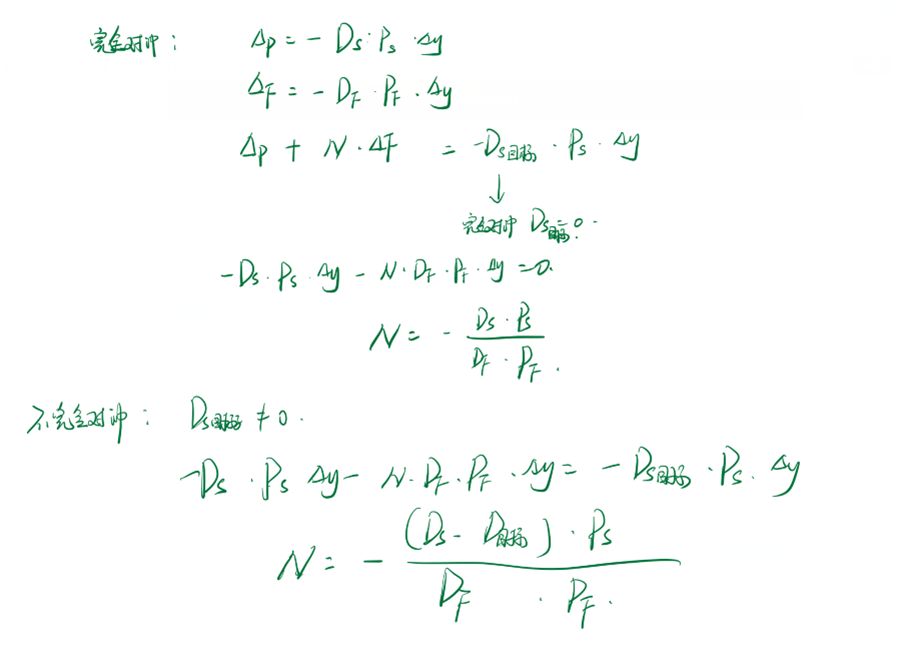 完全对冲： Δp = - Ds · Ps · Δy
ΔF = - DF · PF · Δy
Δp + N · ΔF = -Ds目标 · Ps · Δy
↓
完全对冲 Ds目标=0.
-Ds · Ps · Δy - N · DF · PF · Δy = 0.
N = - \frac{Ds · Ps}{DF · PF}.
不完全对冲： Ds目标 ≠ 0.
-Ds · Ps Δy - N · DF · PF · Δy = - Ds目标 · Ps · Δy
N = - \frac{(Ds - D目标) · Ps}{DF · PF}.